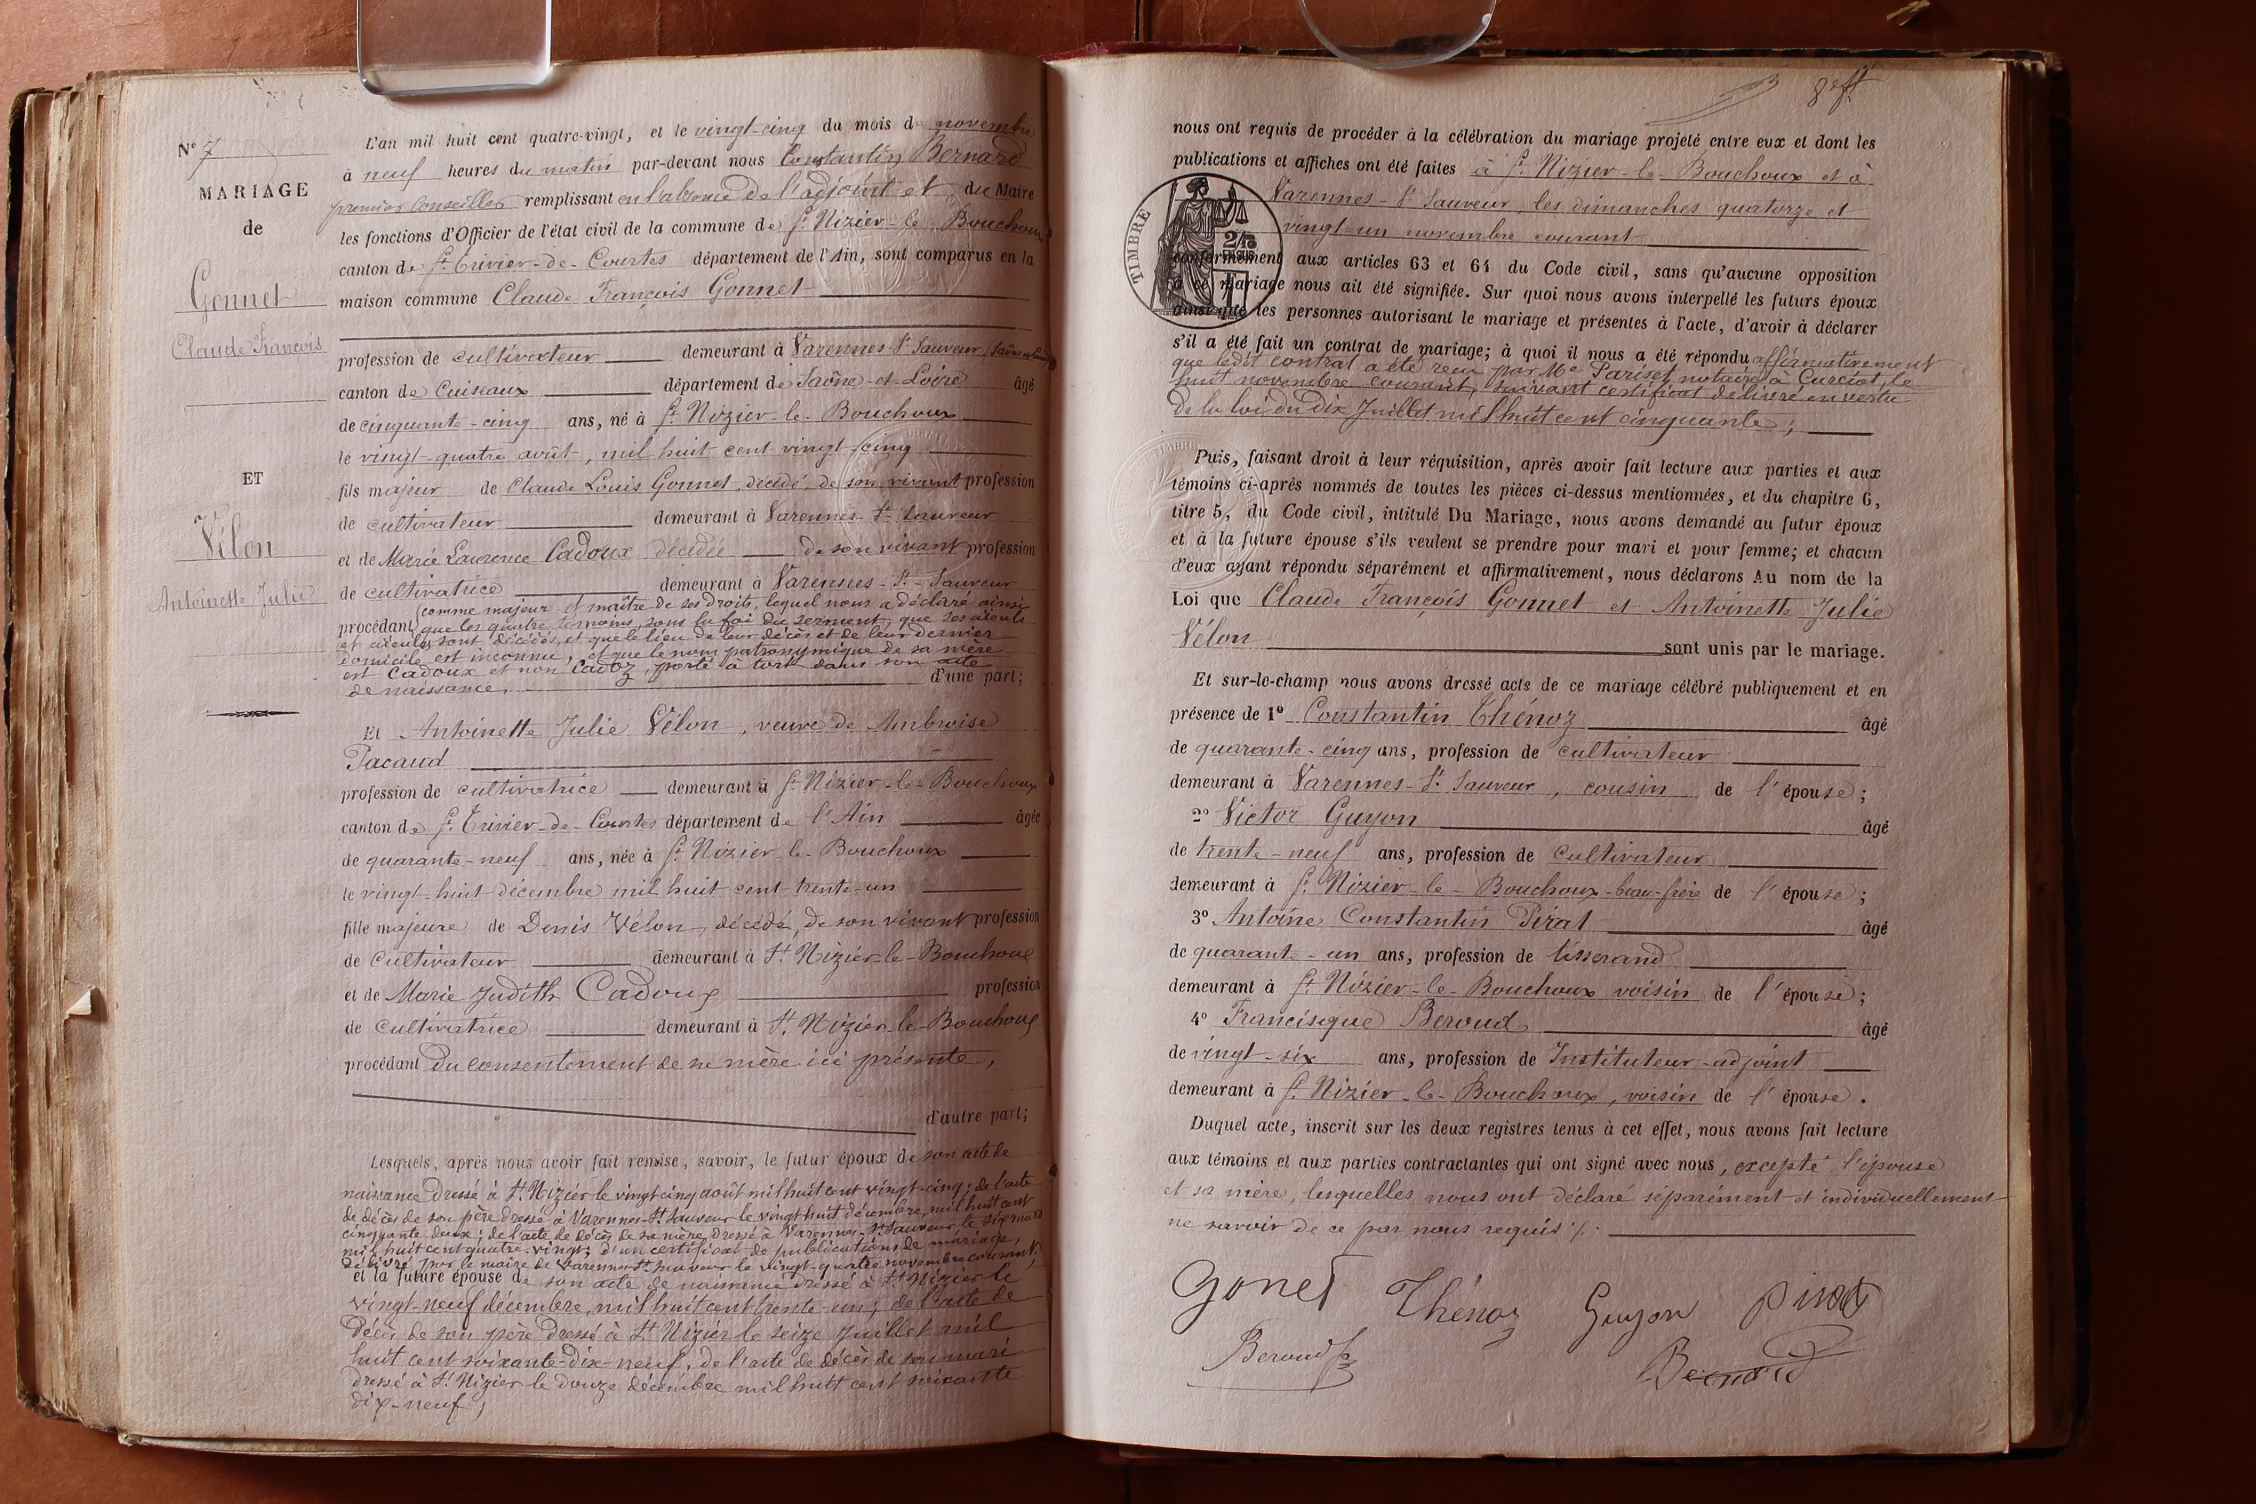 N° 7
MARIAGE
de
Gonnet
Claude François
ET
Vélon
Antoinette Julie
L'an mil huit cent quatre-vingt, et le vingt-cinq du mois de novembre
à neuf heures du matin par-devant nous Constantin Bernard
premier Conseiller remplissant en l'absence de l'adjoint et du Maire
les fonctions d'Officier de l'état civil de la commune de St Nizier-le-Bouchoux
canton de St Trivier-de-Courtes département de l'Ain, sont comparus en la
maison commune Claude François Gonnet
profession de cultivateur demeurant à Varennes-St Sauveur
canton de Cuiseaux département de Saône-et-Loire âgé
de cinquante-cinq ans, né à St Nizier-le-Bouchoux
le vingt-quatre août, mil huit cent vingt-cinq
fils majeur de Claude Louis Gonnet, décédé, de son vivant profession
de cultivateur demeurant à Varennes-St Sauveur
et de Marie Laurence Cadoux décédée de son vivant profession
de cultivatrice demeurant à Varennes-St-Sauveur
procédant comme majeur et maître de ses droits, lequel nous a déclaré ainsi
que les quatre témoins, sous la foi du serment, que ses aïeuls
et aïeules sont décédés, et que le lieu de leur décès et de leur dernier
domicile est inconnu, et que le nom patronymique de sa mère
est Cadoux et non Cadoz, porté à tort dans son acte
de naissance, d'une part;
Et Antoinette Julie Vélon, veuve de Ambroise
Pacaud
profession de cultivatrice demeurant à St Nizier-le-Bouchoux
canton de St Trivier-de-Courtes département de l'Ain âgée
de quarante-neuf ans, née à St Nizier-le-Bouchoux
le vingt-huit décembre mil huit cent trente-un
fille majeure de Denis Vélon, décédé, de son vivant profession
de cultivateur demeurant à St Nizier-le-Bouchoux
et de Marie Judith Cadoux profession
de cultivatrice demeurant à St Nizier-le-Bouchoux
procédant du consentement de sa mère ici présente,
d'autre part;
Lesquels, après nous avoir fait remise, savoir, le futur époux de son acte de
naissance dressé à St Nizier le vingt-cinq août mil huit cent vingt-cinq; de l'acte
de décès de son père dressé à Varennes-St Sauveur le vingt huit décembre, mil huit cent
cinquante deux; de l'acte de décès de sa mère, dressé à Varennes-St Sauveur, le six mars
mil huit cent quatre-vingt; d'un certificat de publications de mariage,
délivré par le maire de Varennes St Sauveur le vingt-quatre novembre courant;
et la future épouse de son acte de naissance dressé à St Nizier le
vingt-neuf décembre, mil huit cent trente-un; de l'acte de
décès de son père dressé à St Nizier le seize Juillet mil
huit cent soixante-dix-neuf, de l'acte de décès de son mari
dressé à St Nizier le douze décembre mil huit cent soixante
dix-neuf;
nous ont requis de procéder à la célébration du mariage projeté entre eux et dont les
publications et affiches ont été faites à St Nizier-le-Bouchoux et à
Varennes-St Sauveur, les dimanches quatorze et
vingt-un novembre courant
TIMBRE
conformément aux articles 63 et 64 du Code civil, sans qu'aucune opposition
à ce mariage nous ait été signifiée. Sur quoi nous avons interpellé les futurs époux
ainsi que les personnes autorisant le mariage et présentes à l'acte, d'avoir à déclarer
s'il a été fait un contrat de mariage; à quoi il nous a été répondu affirmativement
que ledit contrat a été reçu par Me Pariset, notaire à Curciat, le
huit novembre courant, suivant certificat délivré en vertu
de la loi du dix Juillet mil huit cent cinquante;
Puis, faisant droit à leur réquisition, après avoir fait lecture aux parties et aux
témoins ci-après nommés de toutes les pièces ci-dessus mentionnées, et du chapitre 6,
titre 5, du Code civil, intitulé Du Mariage, nous avons demandé au futur époux
et à la future épouse s'ils veulent se prendre pour mari et pour femme; et chacun
d'eux ayant répondu séparément et affirmativement, nous déclarons Au nom de la
Loi que Claude François Gonnet et Antoinette Julie
Vélon sont unis par le mariage.
Et sur-le-champ nous avons dressé acte de ce mariage célébré publiquement et en
présence de 1° Constantin Thénoz âgé
de quarante-cinq ans, profession de cultivateur
demeurant à Varennes-St Sauveur, cousin de l'épouse;
2° Victor Guyon âgé
de trente-neuf ans, profession de cultivateur
demeurant à St Nizier-le-Bouchoux-beau-frère de l'épouse;
3° Antoine Constantin Pirat âgé
de quarante-un ans, profession de tisserand
demeurant à St Nizier-le-Bouchoux voisin de l'épouse;
4° Francisque Beroud âgé
de vingt-six ans, profession de Instituteur-adjoint
demeurant à St Nizier-le-Bouchoux, voisin de l'épouse.
Duquel acte, inscrit sur les deux registres tenus à cet effet, nous avons fait lecture
aux témoins et aux parties contractantes qui ont signé avec nous, excepté l'épouse
et sa mère, lesquelles nous ont déclaré séparément et individuellement
ne savoir de ce par nous requis
Gonet Thénoz Guyon Pirat
Beroud Bernard